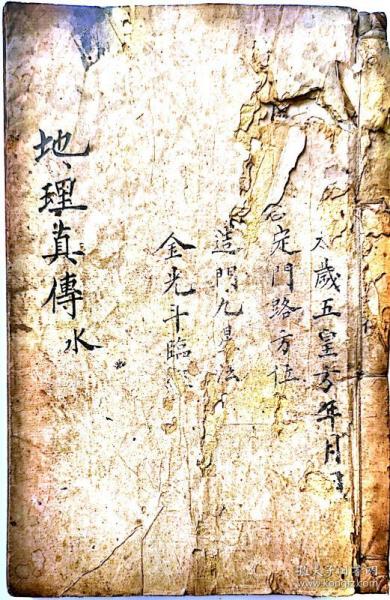 太歲五皇方年月
定門路方位
造門九星法
金光斗臨
地理真傳水
孔夫子旧书网
www.kongfz.com